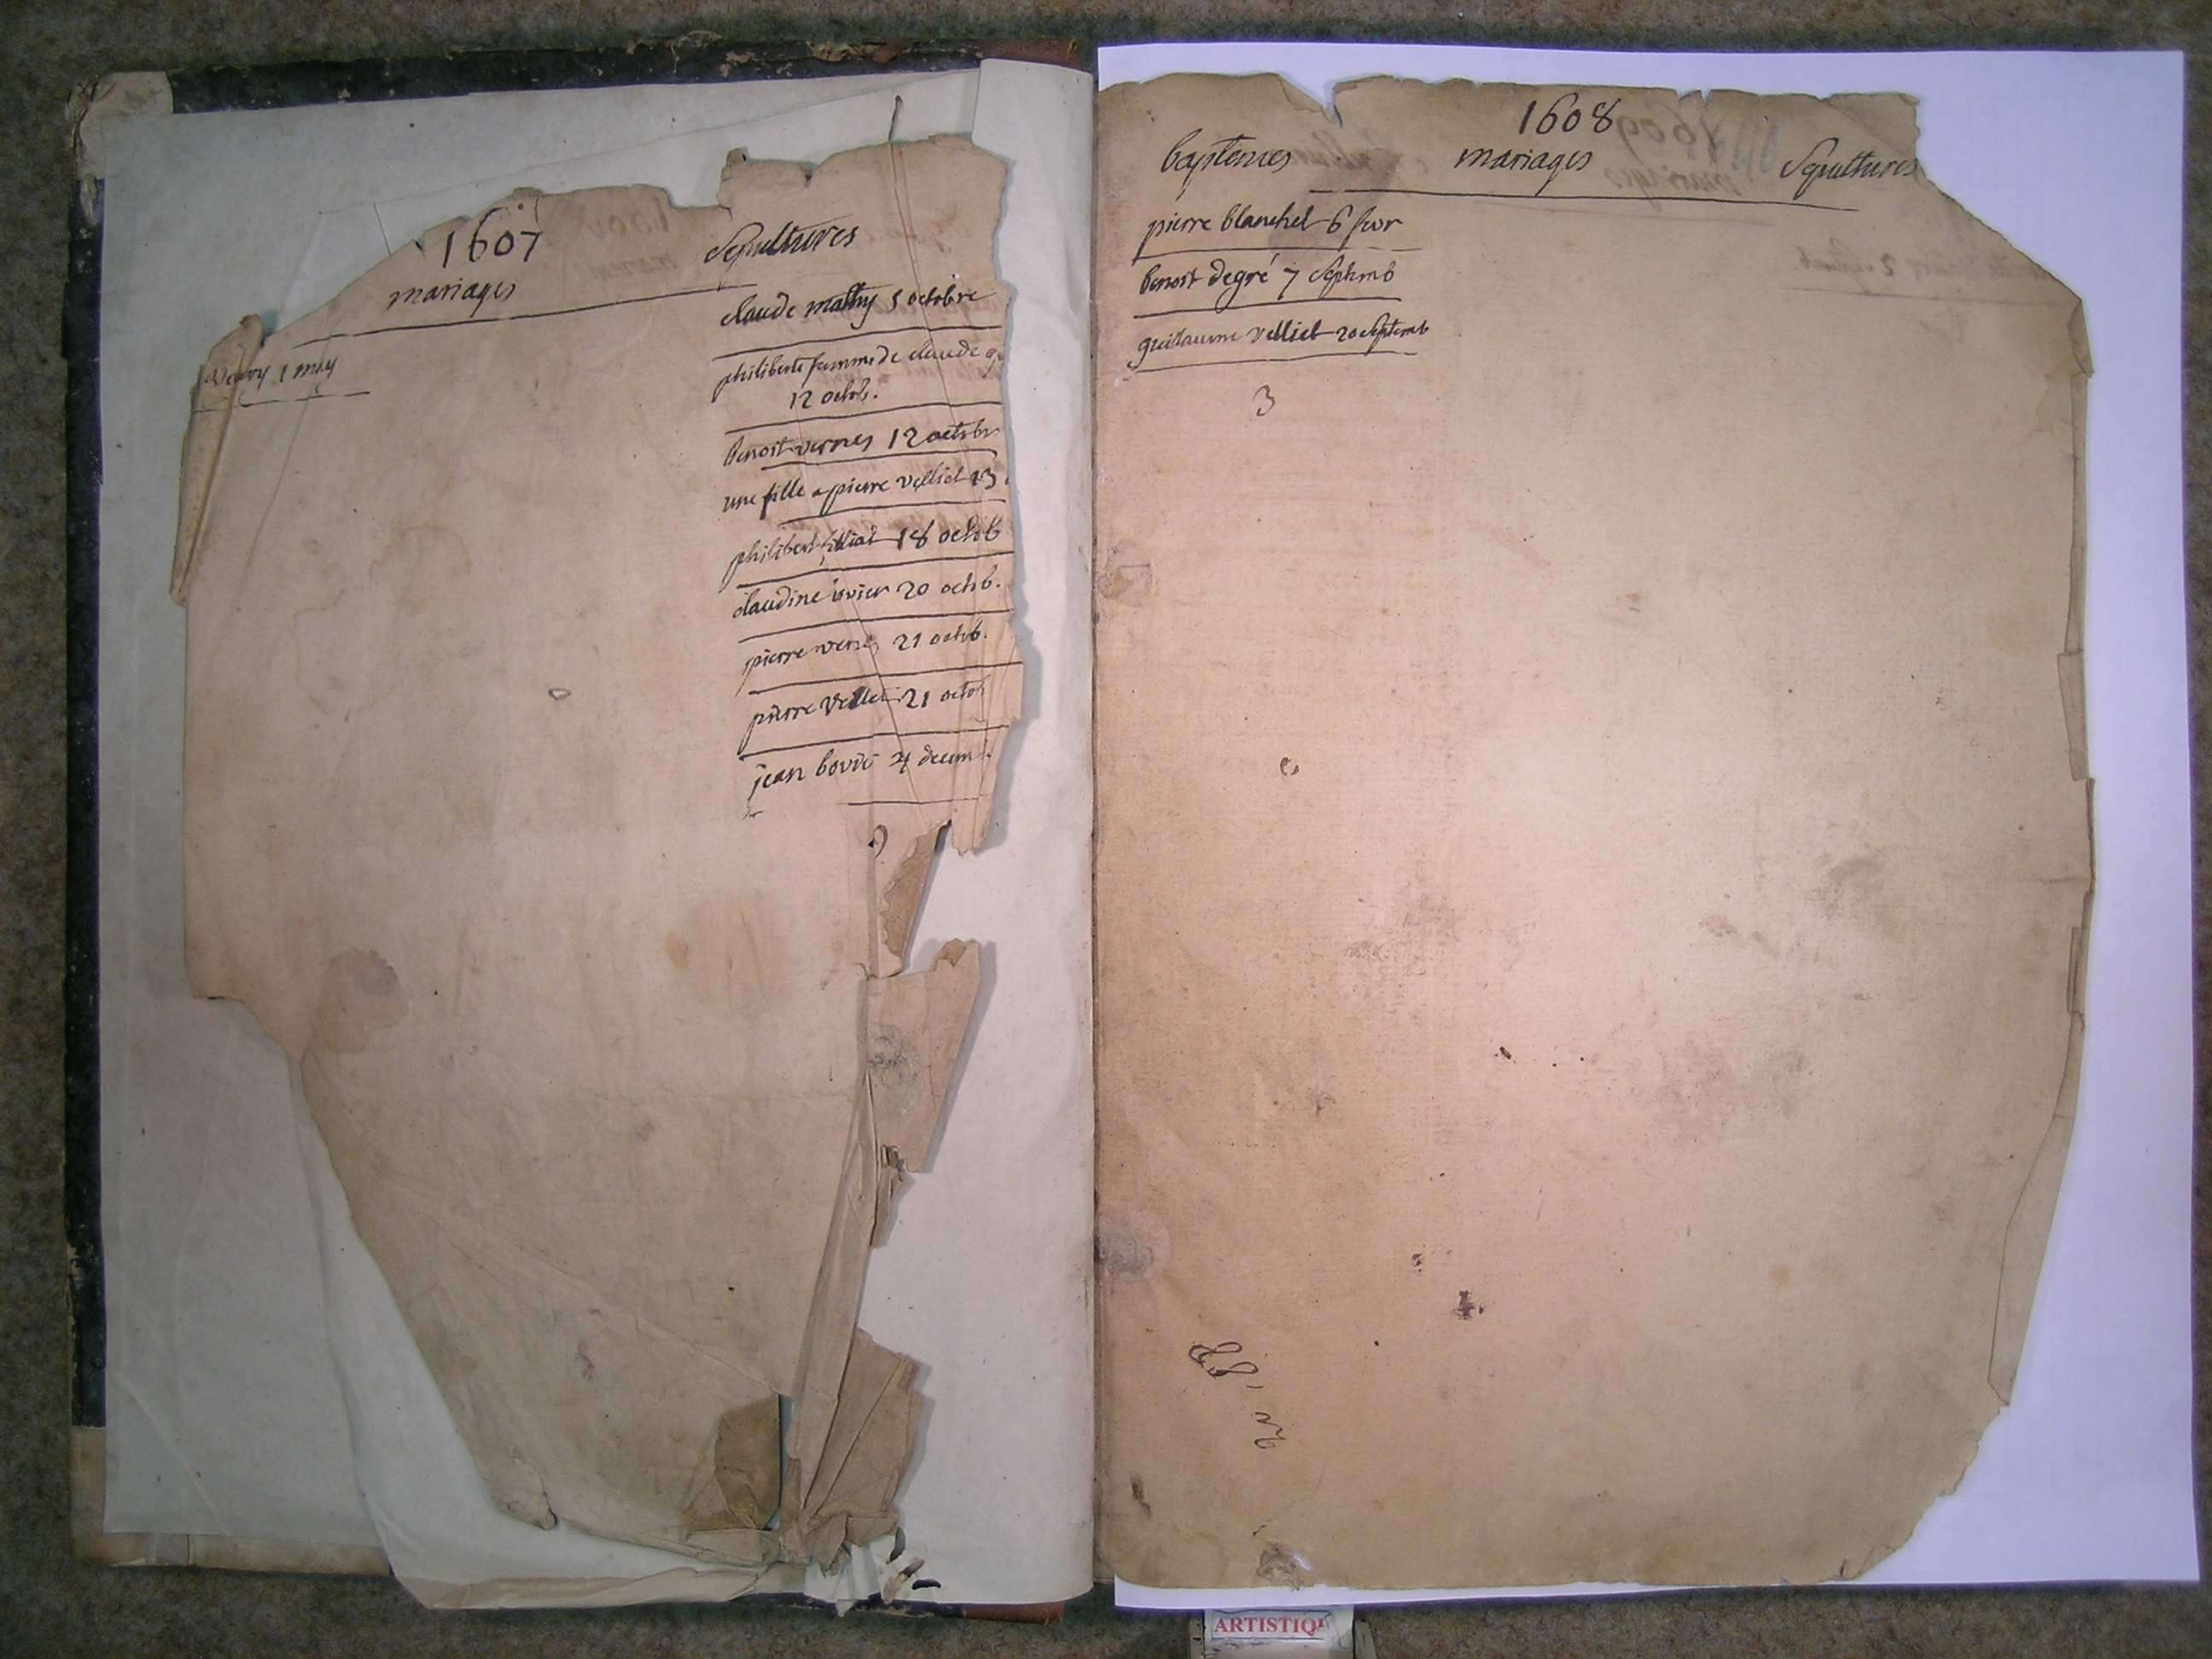 1607
mariages
1 may
Sepultures
claude mathy 5 octobre
philiberte femme de claude
12 octob.
Benoit vernes 12 octobr
une fille a pierre velliet 13
philibert filliat 18 octob
claudine 20 octob.
pierre 21 octob.
pierre vellet 21 octob
jean bovié 4 decem
1608
baptemes mariages Sepultures
pierre blanchet 6 fevr
benoit degré 7 Septemb
guillaume velliet 20 Septemb
3
ARTISTIQU